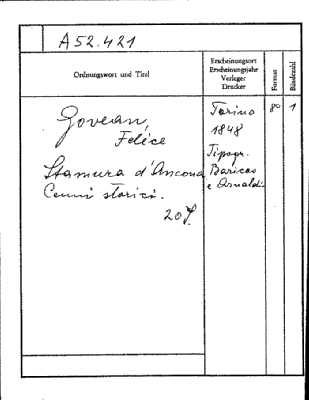 A52.421
Ordnungswort und Titel
Erscheinungsort
Erscheinungsjahr
Verleger
Drucker
Format
Bändezahl
Govean,
Felice
Stamura d'Ancona
Cenni storici.
20 S.
Torino
1848
Tipogr.
Baricco
e Arnaldi.
8º
1